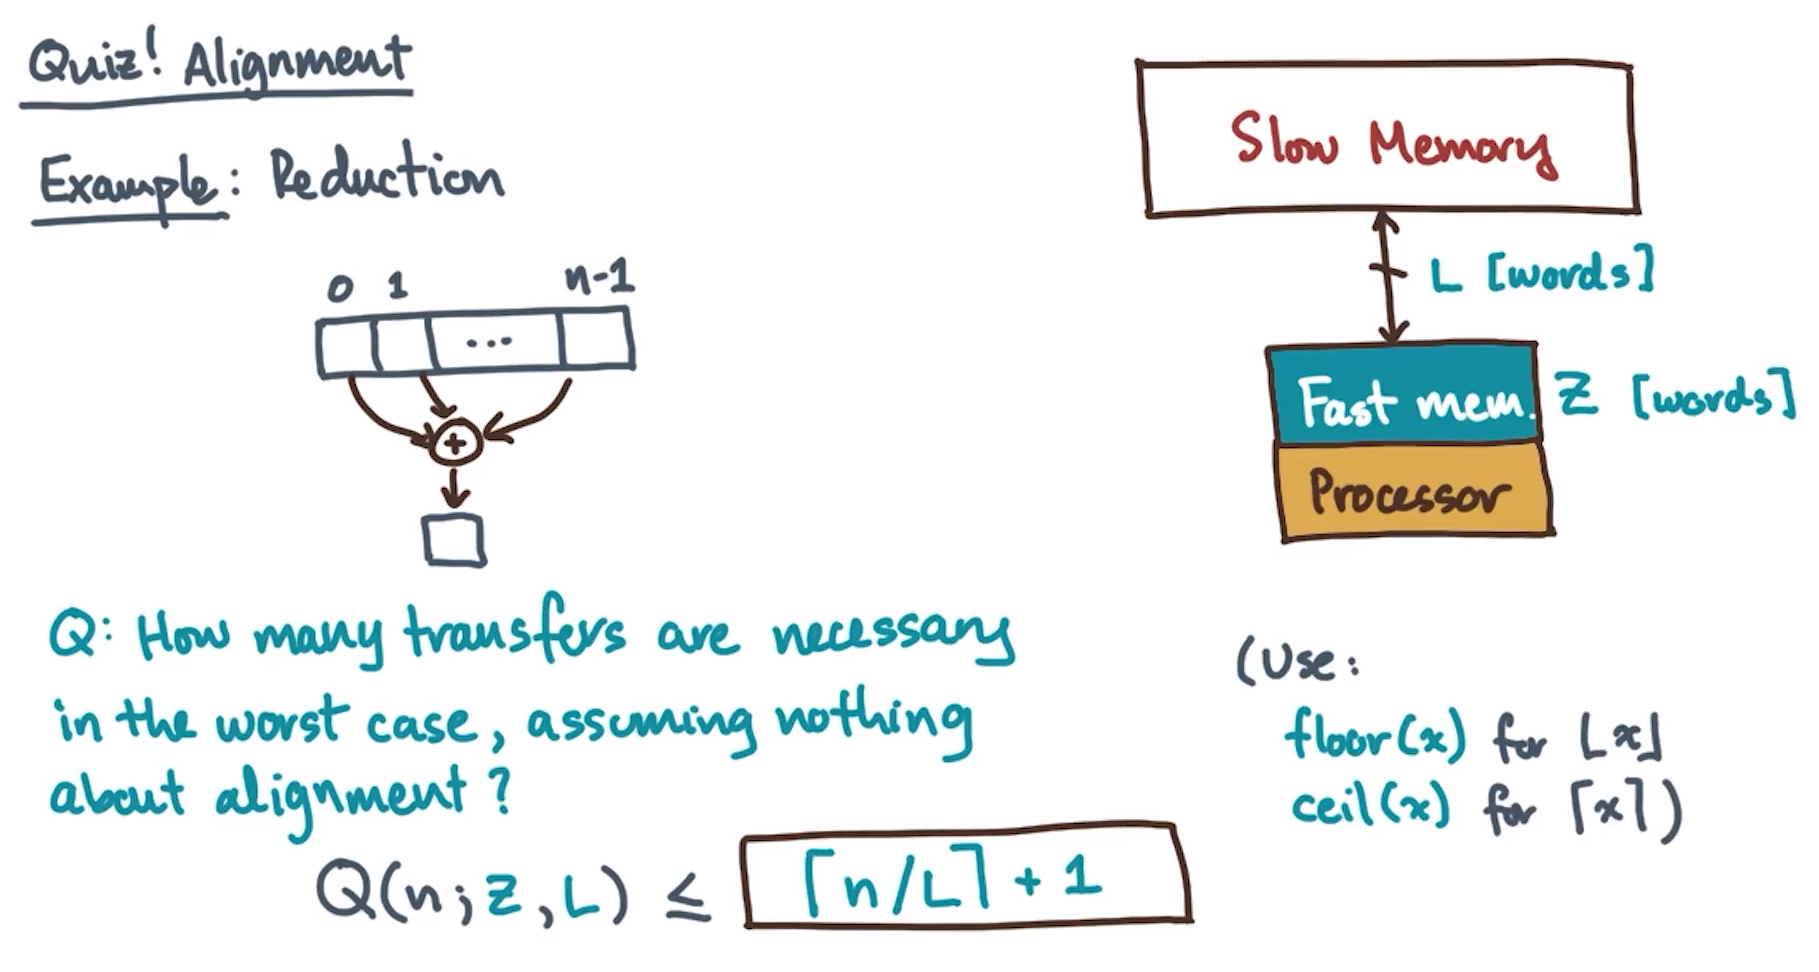 Quiz! Alignment
Example: Reduction
0 1 n-1
...
+
Slow Memory
L [words]
Fast mem. Z [words]
Processor
Q: How many transfers are necessary
in the worst case, assuming nothing
about alignment?
Q(n; Z, L) ≤ ⌈n/L⌉ + 1
(Use:
floor(x) for ⌊x⌋
ceil(x) for ⌈x⌉)